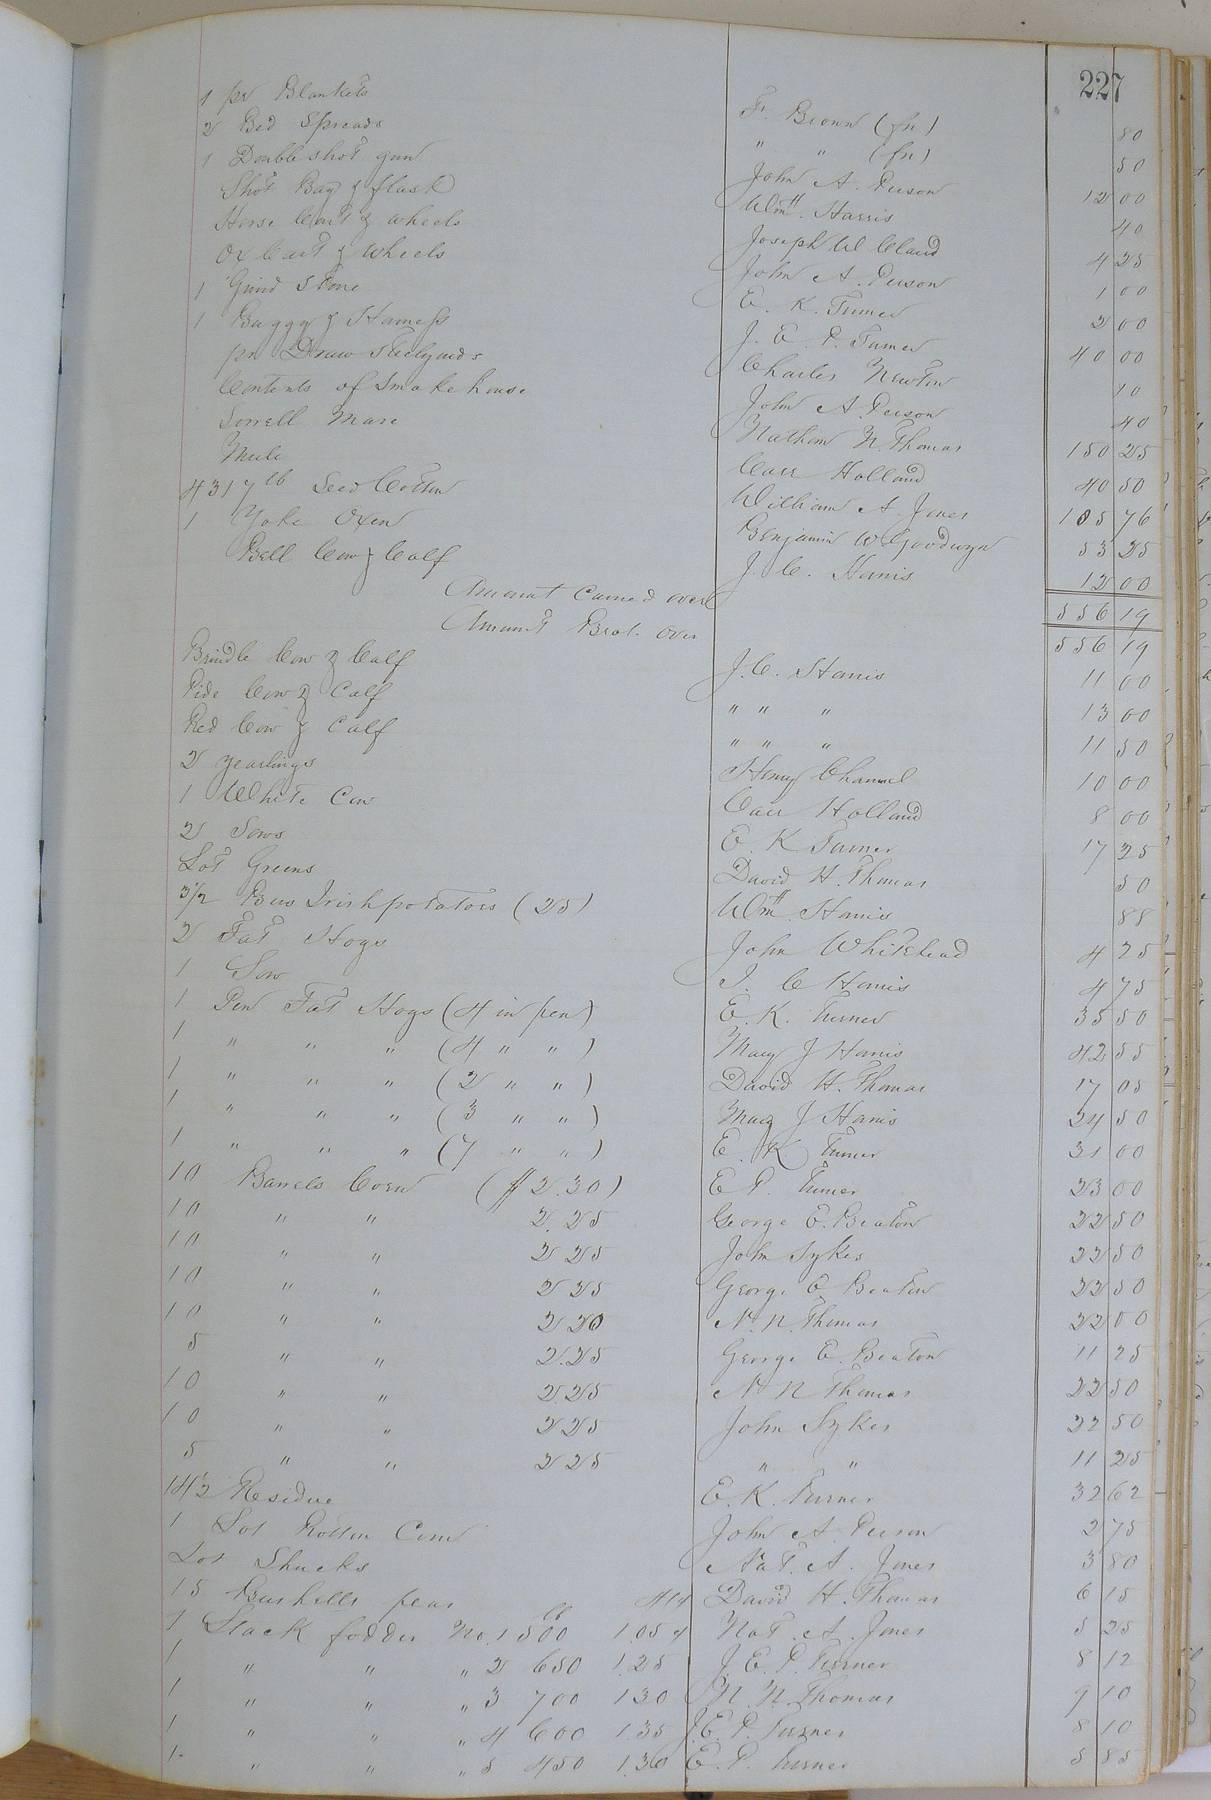 227
1 pr Blankets F. Brown (fn) 80
2 Bed Spreads " " (fn) 50
1 Double shot gun John A. Person 12 00
Shot Bag & flask Wm H. Harris 40
Horse Cart & wheels Joseph W Claud 4 25
Ox Cart & Wheels John A. Person 1 00
1 Grind Stone E. K. Turner 2 00
1 Buggy & Harness J. E. P. Turner 40 00
pr Draw Steelyards Charles Newton 10
Contents of Smoke house John A. Person 40
Sorrell Mare Nathan N. Thomas 150 25
Mule Carr Holland 40 50
4317 lb Seed Cotton William A. Jones 105 76
1 Yoke Oxen Benjamin W. Goodwyn 53 25
Bell Cow & Calf J. C. Harris 12 00
Amount Carried over 556 19
Amount Brot. over 556 19
Brindle Cow & Calf J. C. Harris 11 00
Pide Cow & Calf " " " 13 00
Red Cow & Calf " " " 11 50
2 yearlings Henry Channel 10 00
1 White Cow Carr Holland 8 00
2 Sows E. K Turner 17 25
Lot Greens David H. Thomas 50
3 1/2 Bus Irish potatoes (25) Wm H. Harris 88
2 Fat Hogs John Whitehead 4 25
1 Sow J. C Harris 4 75
1 Pen Fat Hogs (4 in pen) E. K. Turner 35 50
1 " " " (4 " " ) Mary J Harris 42 55
1 " " " (2 " " ) David H. Thomas 17 05
1 " " " (3 " " ) Mary J Harris 24 50
1 " " " (7 " " ) E. K. Turner 31 00
10 Barrels Corn ($2.30) E P. Turner 23 00
10 " " 2.25 George E. Beaton 22 50
10 " " 2 25 John Sykes 22 50
10 " " 2 25 George E Beaton 22 50
10 " " 2 20 N. N. Thomas 22 00
5 " " 2.25 George E. Beaton 11 25
10 " " 2.25 N N Thomas 22 50
10 " " 2 25 John Sykes 22 50
5 " " 2 25 " " 11 25
14 1/2 Residue E. K. Turner 32 62
1 Lot Rotten Corn John A. Person 2 75
Lot Shucks Nat. A. Jones 3 80
15 Bushells peas 41¢ David H. Thomas 6 15
1 Stack fodder No. 1 500 lb 1.05 ¢ Nat. A. Jones 5 25
1 " " " 2 650 1.25 J. E. P. Turner 8 12
1 " " " 3 700 1 30 N. N. Thomas 9 10
1 " " " 4 600 1 35 J. E. P. Turner 8 10
1 " " " 5 450 1.30 E. P. Turner 5 85